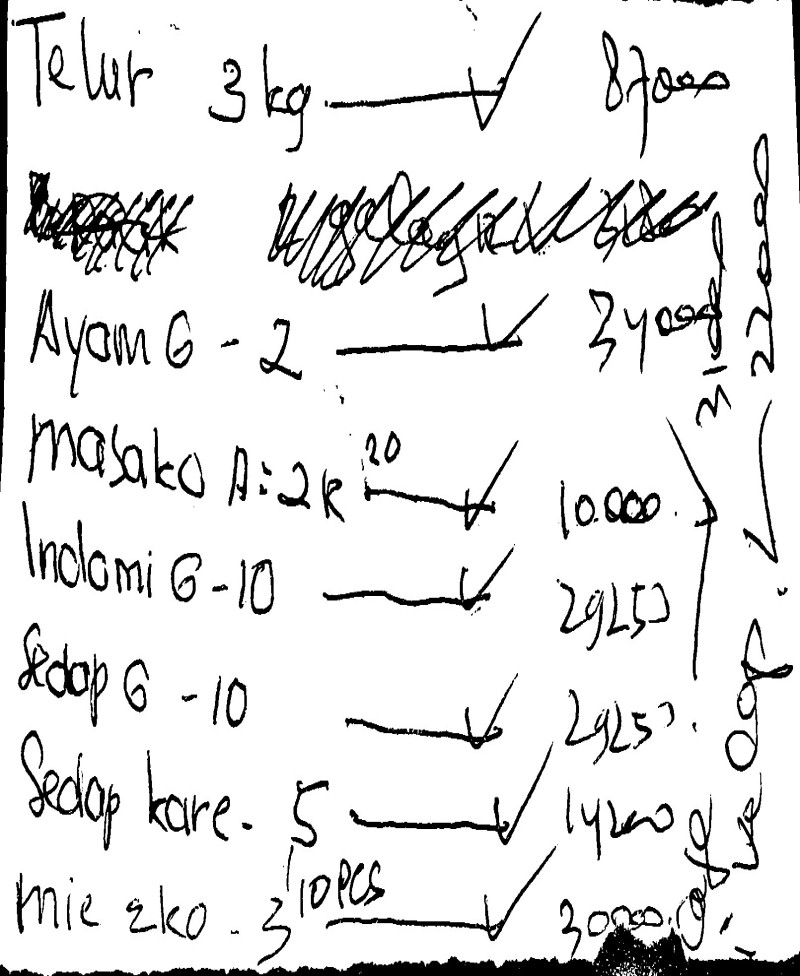 Telur 3 kg 87000
Ayam G - 2 34000
Masako A: 2k 20 10.000
Indomi G - 10 29250
Sedap G - 10 29250
Sedap kare - 5 14200
Mie eko - 3 10 PCS 30000
22000